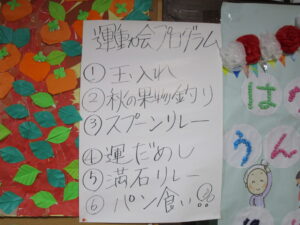 運動会プログラム
① 玉入れ
② 秋の果物釣り
③ スプーンリレー
④ 運だめし
⑤ 満石リレー
⑥ パン食い!?
は
うん